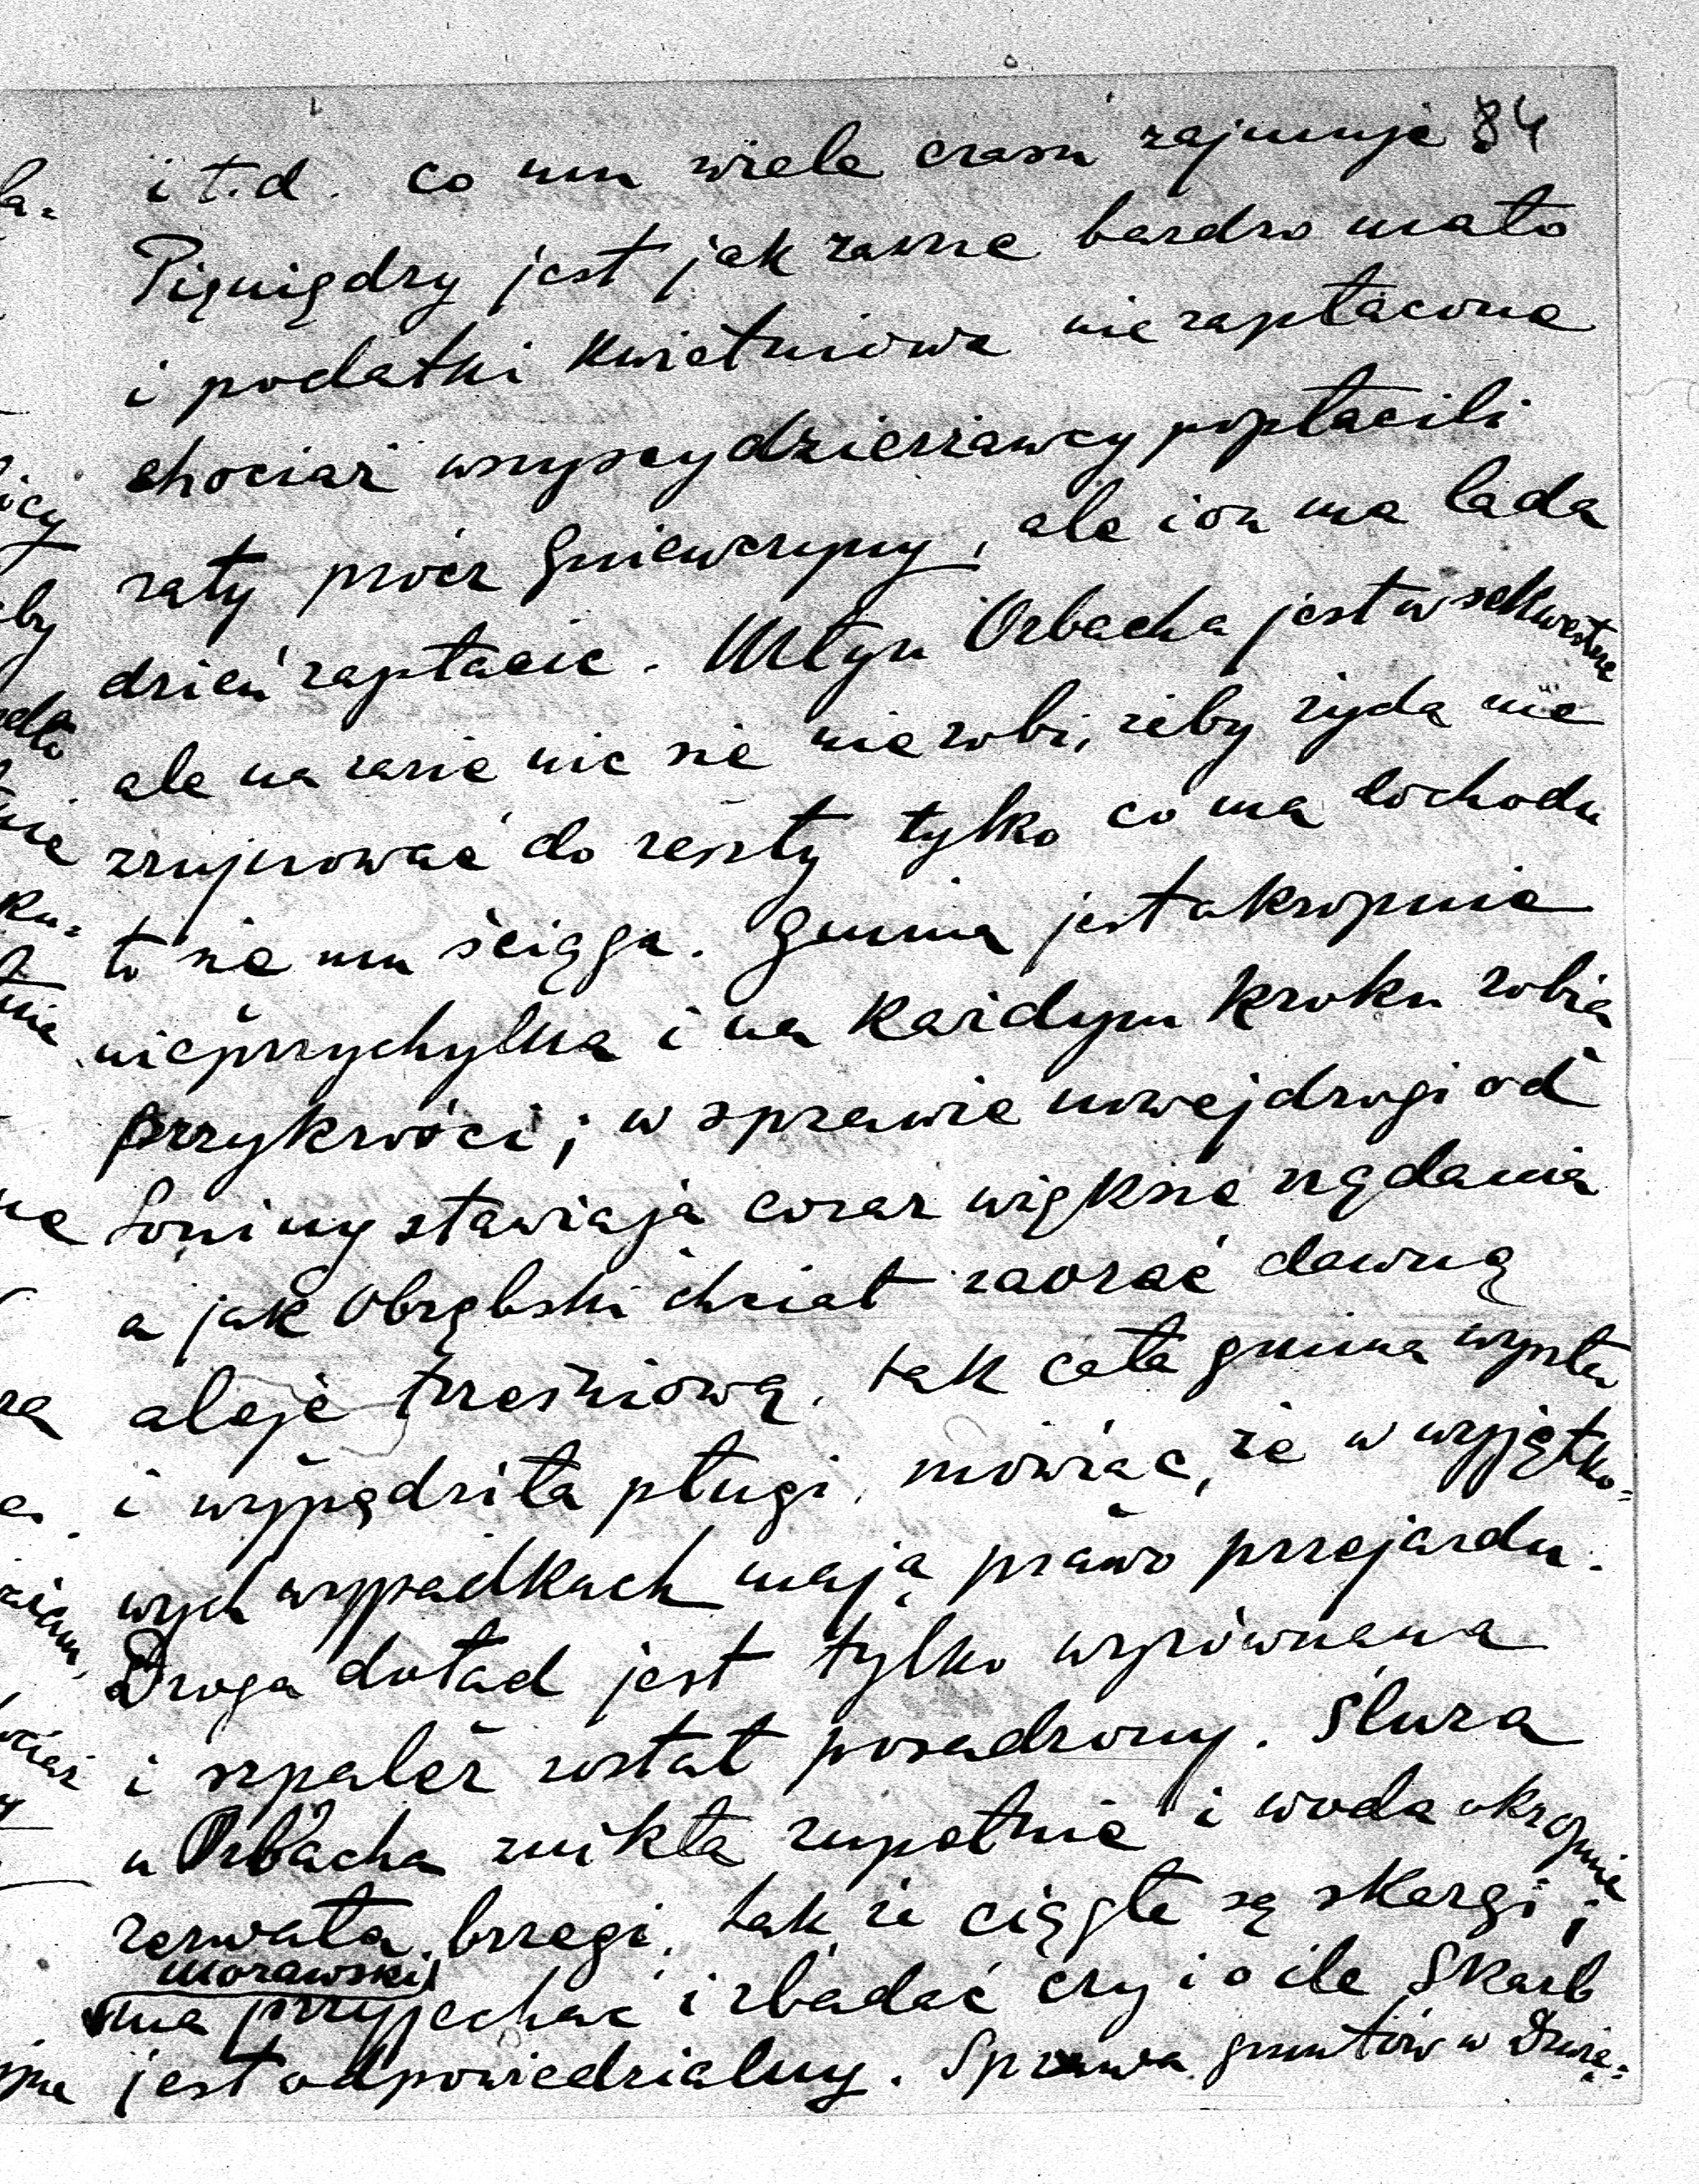 84
i t.d. co mu wiele czasu zajmuje
Pięniędzy jest jak zawsze bardzo mało
i podatki kwietniowe nie zapłacone
chociaż wszyscy dzierżawcy popłacili
raty prócz Gniewczyny, ale i on ma lada
dzień zapłacić. Młyn Orbacha jest w sekwestrze
ale na razie nic się nie robi, żeby żyda nie
zrujnować do reszty tylko co ma dochodu
to się mu ściąga. Gmina jest okropnie
nieprzychylna i na każdym kroku robią
przykrości; w sprawie nowej drogi od
Łopiny stawiają coraz większe żądania
a jak Obrębski chciał zaorać dawną
aleję trześniową, tak cała gmina wyszła
i wypędziła pługi, mówiąc, że w wyjątko=
wych wypadkach mają prawo przejazdu.
Droga dotąd jest tylko wyrównana
i szpaler został posadzony. Śluza
u Orbacha znikła zupełnie i woda okropnie
zerwała brzegi, tak że ciągłe są skargi;
Morawski
ma przyjechać i zbadać czy i o ile Skarb
jest odpowiedzialny. Sprawa gruntów w